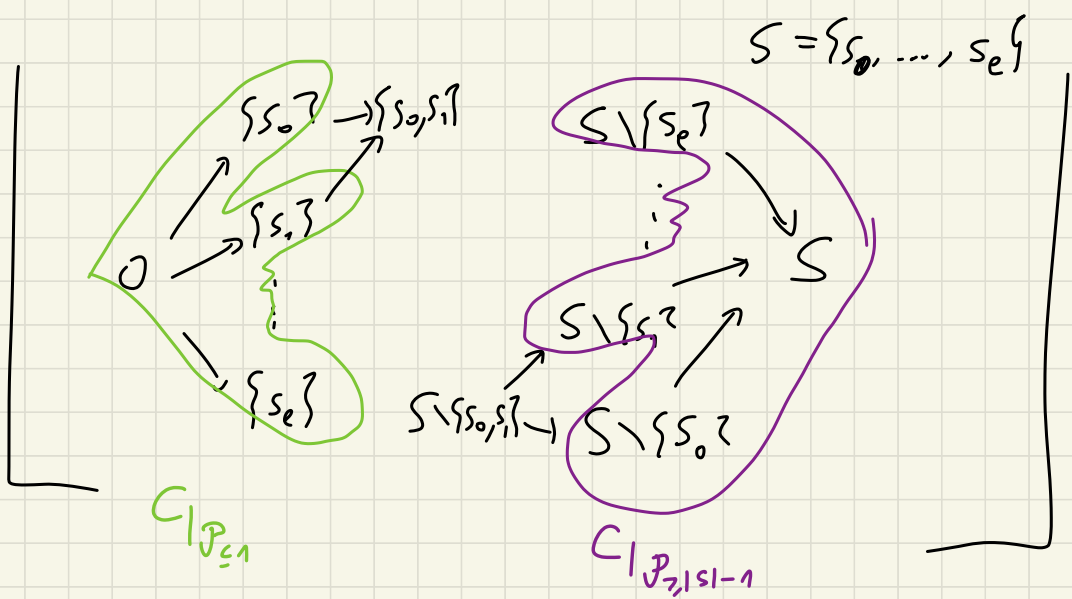 S = {s₀, ..., sₑ}
{s₀} → {s₀,s₁}
S\{sₑ}
{s₁}
0
S
S\{s₁}
{sₑ}
S\{s₀,s₁} → S\{s₀}
C|𝒫≤1
C|𝒫≥|S|-1